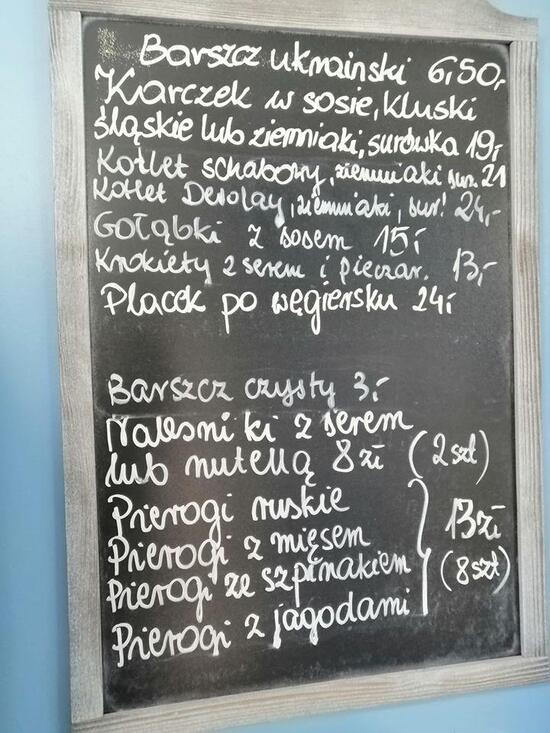 Barszcz ukraiński 6,50,-
Karczek w sosie, kluski
śląskie lub ziemniaki, surówka 19,-
Kotlet schabowy, ziemniaki sur. 21
Kotlet Devolay, ziemniaki, sur! 24,-
Gołąbki z sosem 15,-
Krokiety z serem i pieczar. 13,-
Placek po węgiersku 24,-
Barszcz czysty 3,-
Naleśniki z serem
lub nutellą 8 zł (2 szt)
Pierogi ruskie
Pierogi z mięsem 13 zł
Pierogi ze szpinakiem (8 szt)
Pierogi z jagodami